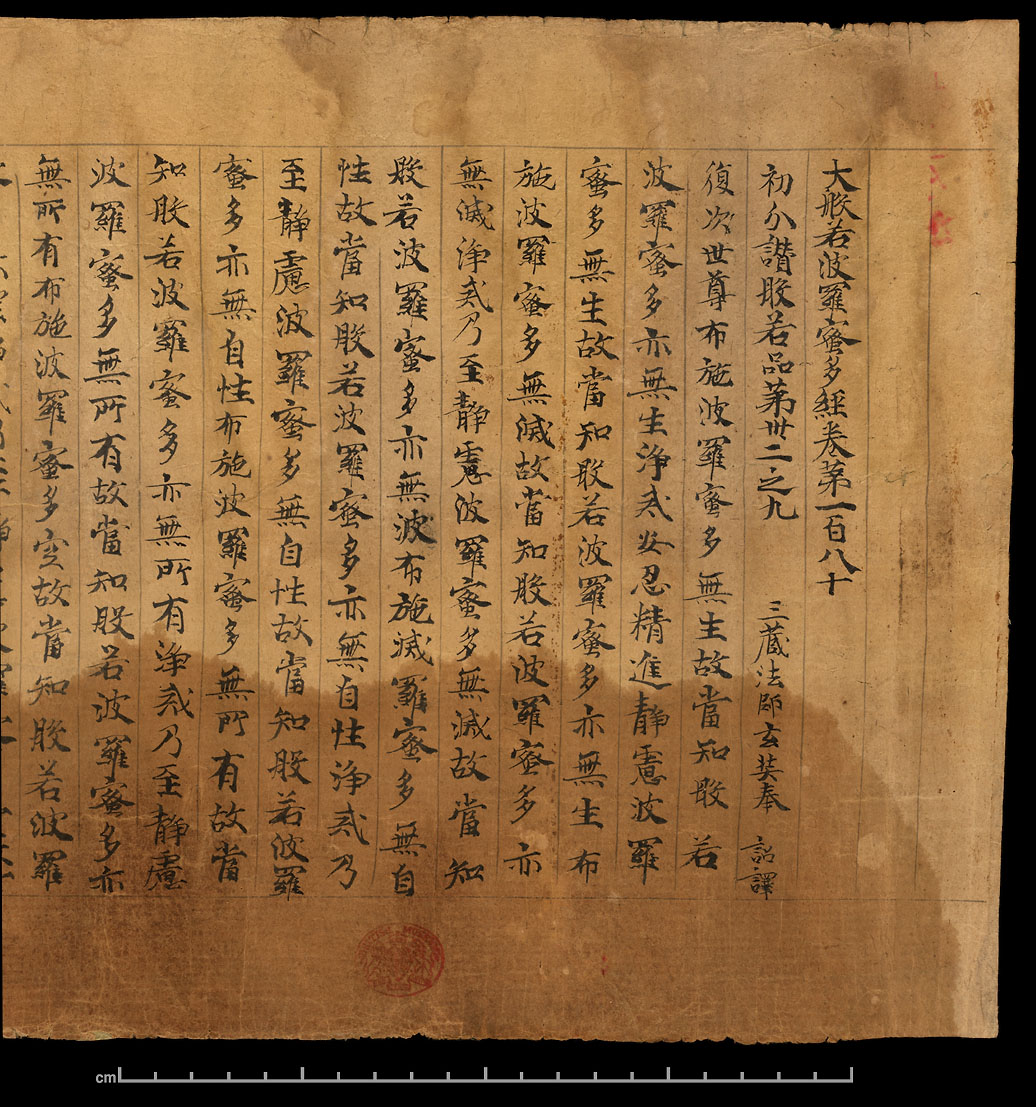 大般若波羅蜜多經卷第一百八十
初分讚般若品第卅二之九 三藏法師玄奘奉 詔譯
復次世尊布施波羅蜜多無生故當知般若
波羅蜜多亦無生淨戒安忍精進靜慮波羅
蜜多無生故當知般若波羅蜜多亦無生布
施波羅蜜多無滅故當知般若波羅蜜多亦
無滅淨戒乃至靜慮波羅蜜多無滅故當知
般若波羅蜜多亦無波布施滅羅蜜多無自
性故當知般若波羅蜜多亦無自性淨戒乃
至靜慮波羅蜜多無自性故當知般若波羅
蜜多亦無自性布施波羅蜜多無所有故當
知般若波羅蜜多亦無所有淨戒乃至靜慮
波羅蜜多無所有故當知般若波羅蜜多亦
無所有布施波羅蜜多空故當知般若波羅
cm